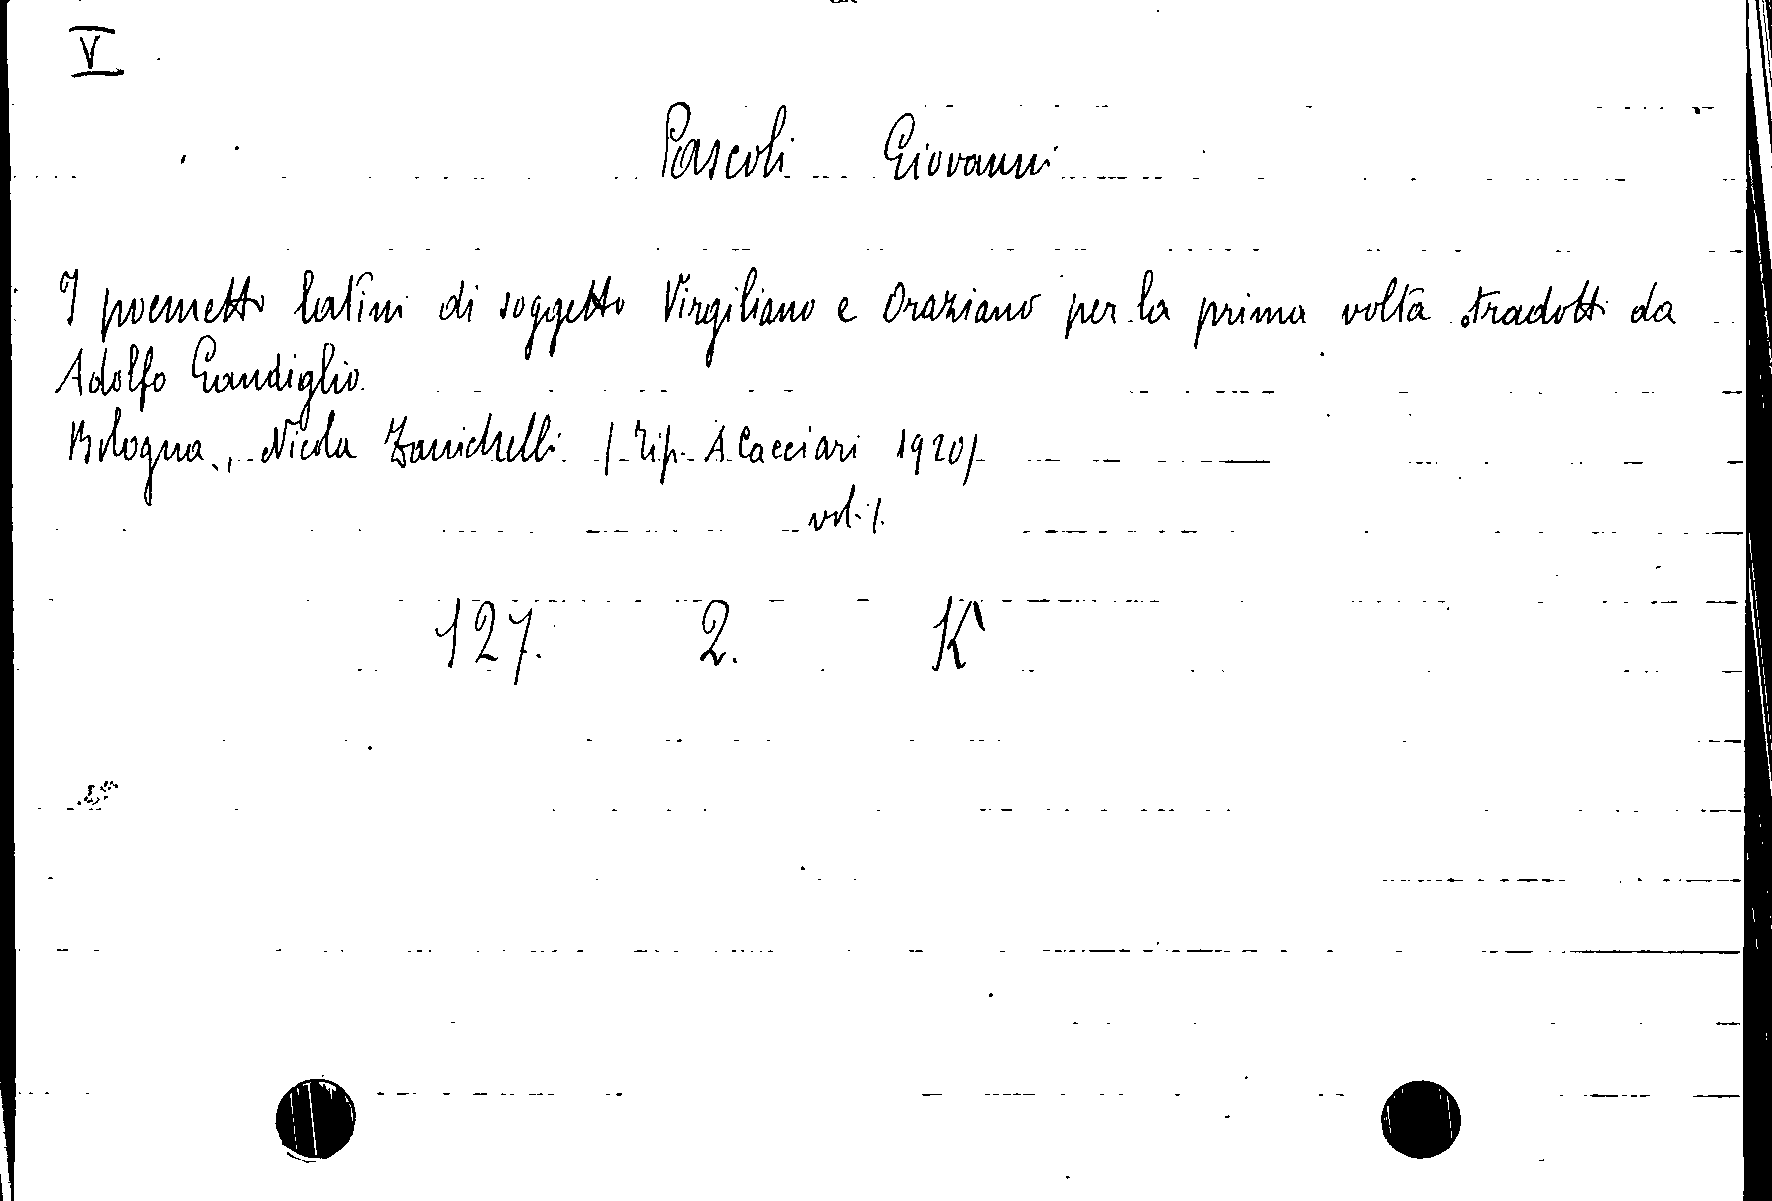 V
Pascoli Giovanni
I poemetto latini di soggetto Virgiliano e Oraziano per la prima volta tradotti da
Adolfo Gandiglio
Bologna., Nicola Zanichelli / Tip. A. Cacciari 1920/
vol. 1.
127. 2. K